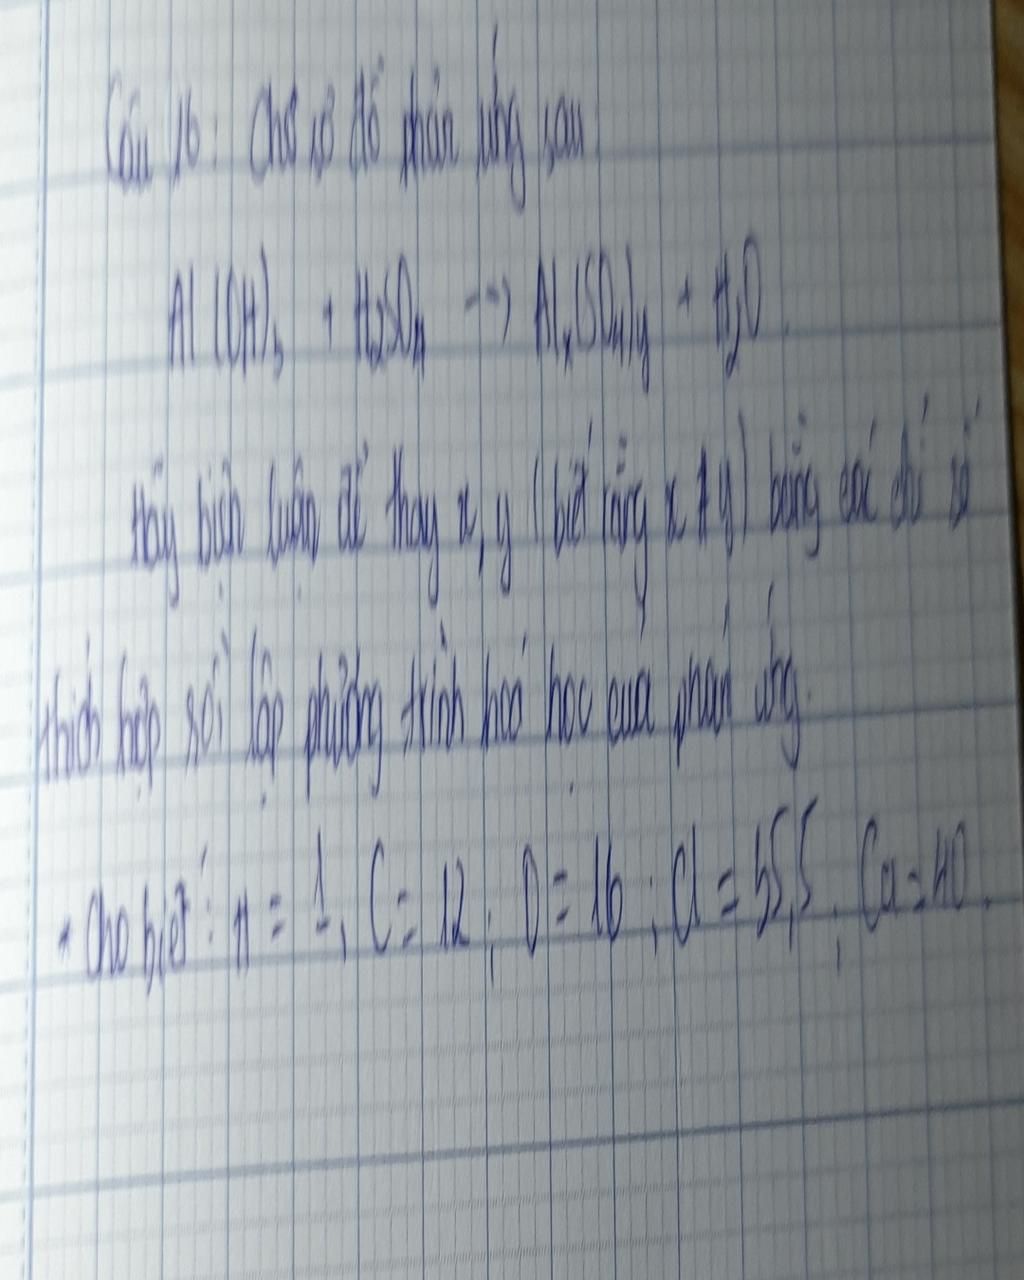 Câu 16: Cho sơ đồ phản ứng sau
Al(OH)₃ + H₂SO₄ --> Alₓ(SO₄)y + H₂O
Hãy biện luận để thay x, y (biết rằng x ≠ y) bằng các chỉ số
thích hợp rồi lập phương trình hoá học của phản ứng.
* Cho biết: H = 1, C = 12; O = 16; Cl = 35,5; Ca = 40.